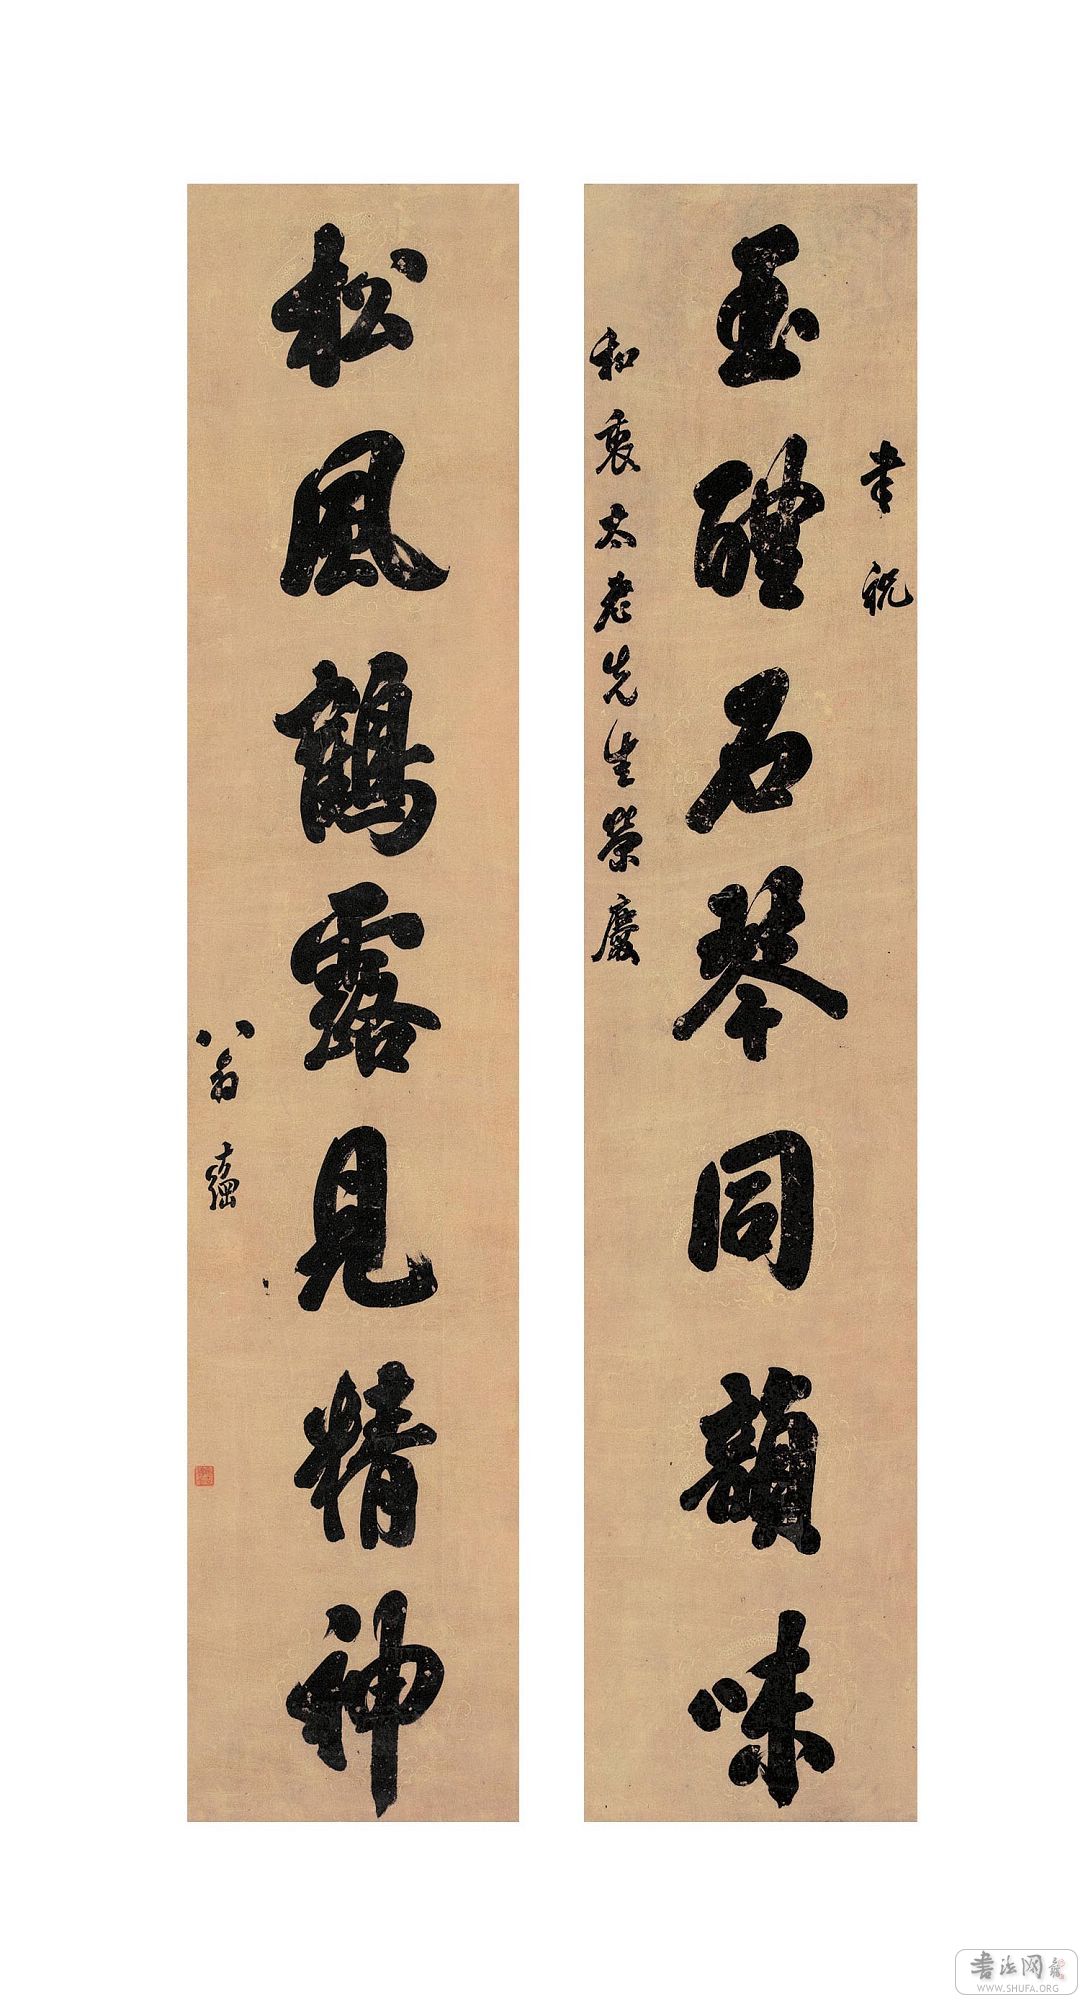 書祝
玉醴石琴同韻味
和衷太老先生榮慶
松風鶴露見精神
八翁
書法网
WWW.SHUFA.ORG